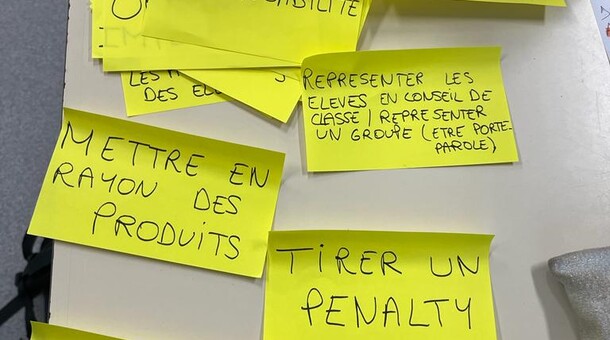 REPRESENTER LES
ELEVES EN CONSEIL DE
CLASSE / REPRESENTER
UN GROUPE (ETRE PORTE-
PAROLE)
DES
METTRE EN
RAYON DES
PRODUITS
TIRER UN
PENALTY